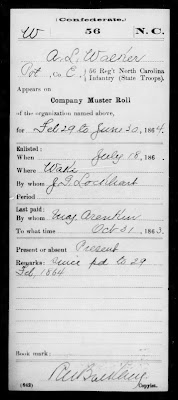 (Confederate.)
W 56 N. C.
A. L. Walker
Pvt, Co. E, 56 Reg't North Carolina
Infantry (State Troops).
Appears on
Company Muster Roll
of the organization named above,
for Feb 29 to June 30, 1864.
Enlisted:
When July 18, 186 .
Where Wake
By whom J. G. Lockhart
Period
Last paid:
By whom Maj.
To what time Oct 31, 1863.
Present or absent Present
Remarks: since pd to 29
Feb 1864
Book mark:
(642) Copyist.